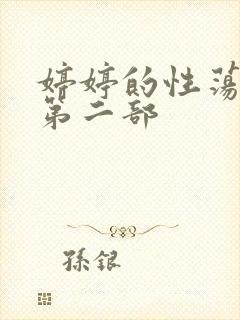 婷婷的性荡
第二部
孫銀